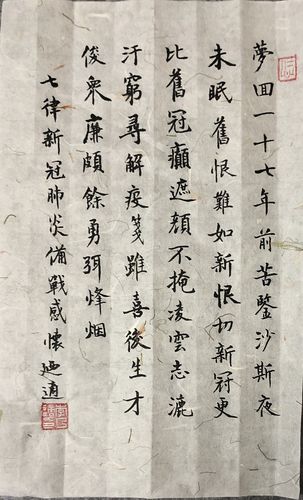 夢回一十七年前苦沙斯夜
未眠舊恨難如新恨切新冠更
比舊冠癲遮顏不掩凌雲志漉
汗窮尋解疫箋雖喜後生才
俊衆廉頗餘勇弭烽烟
七律新冠肺炎備戰感懷 適